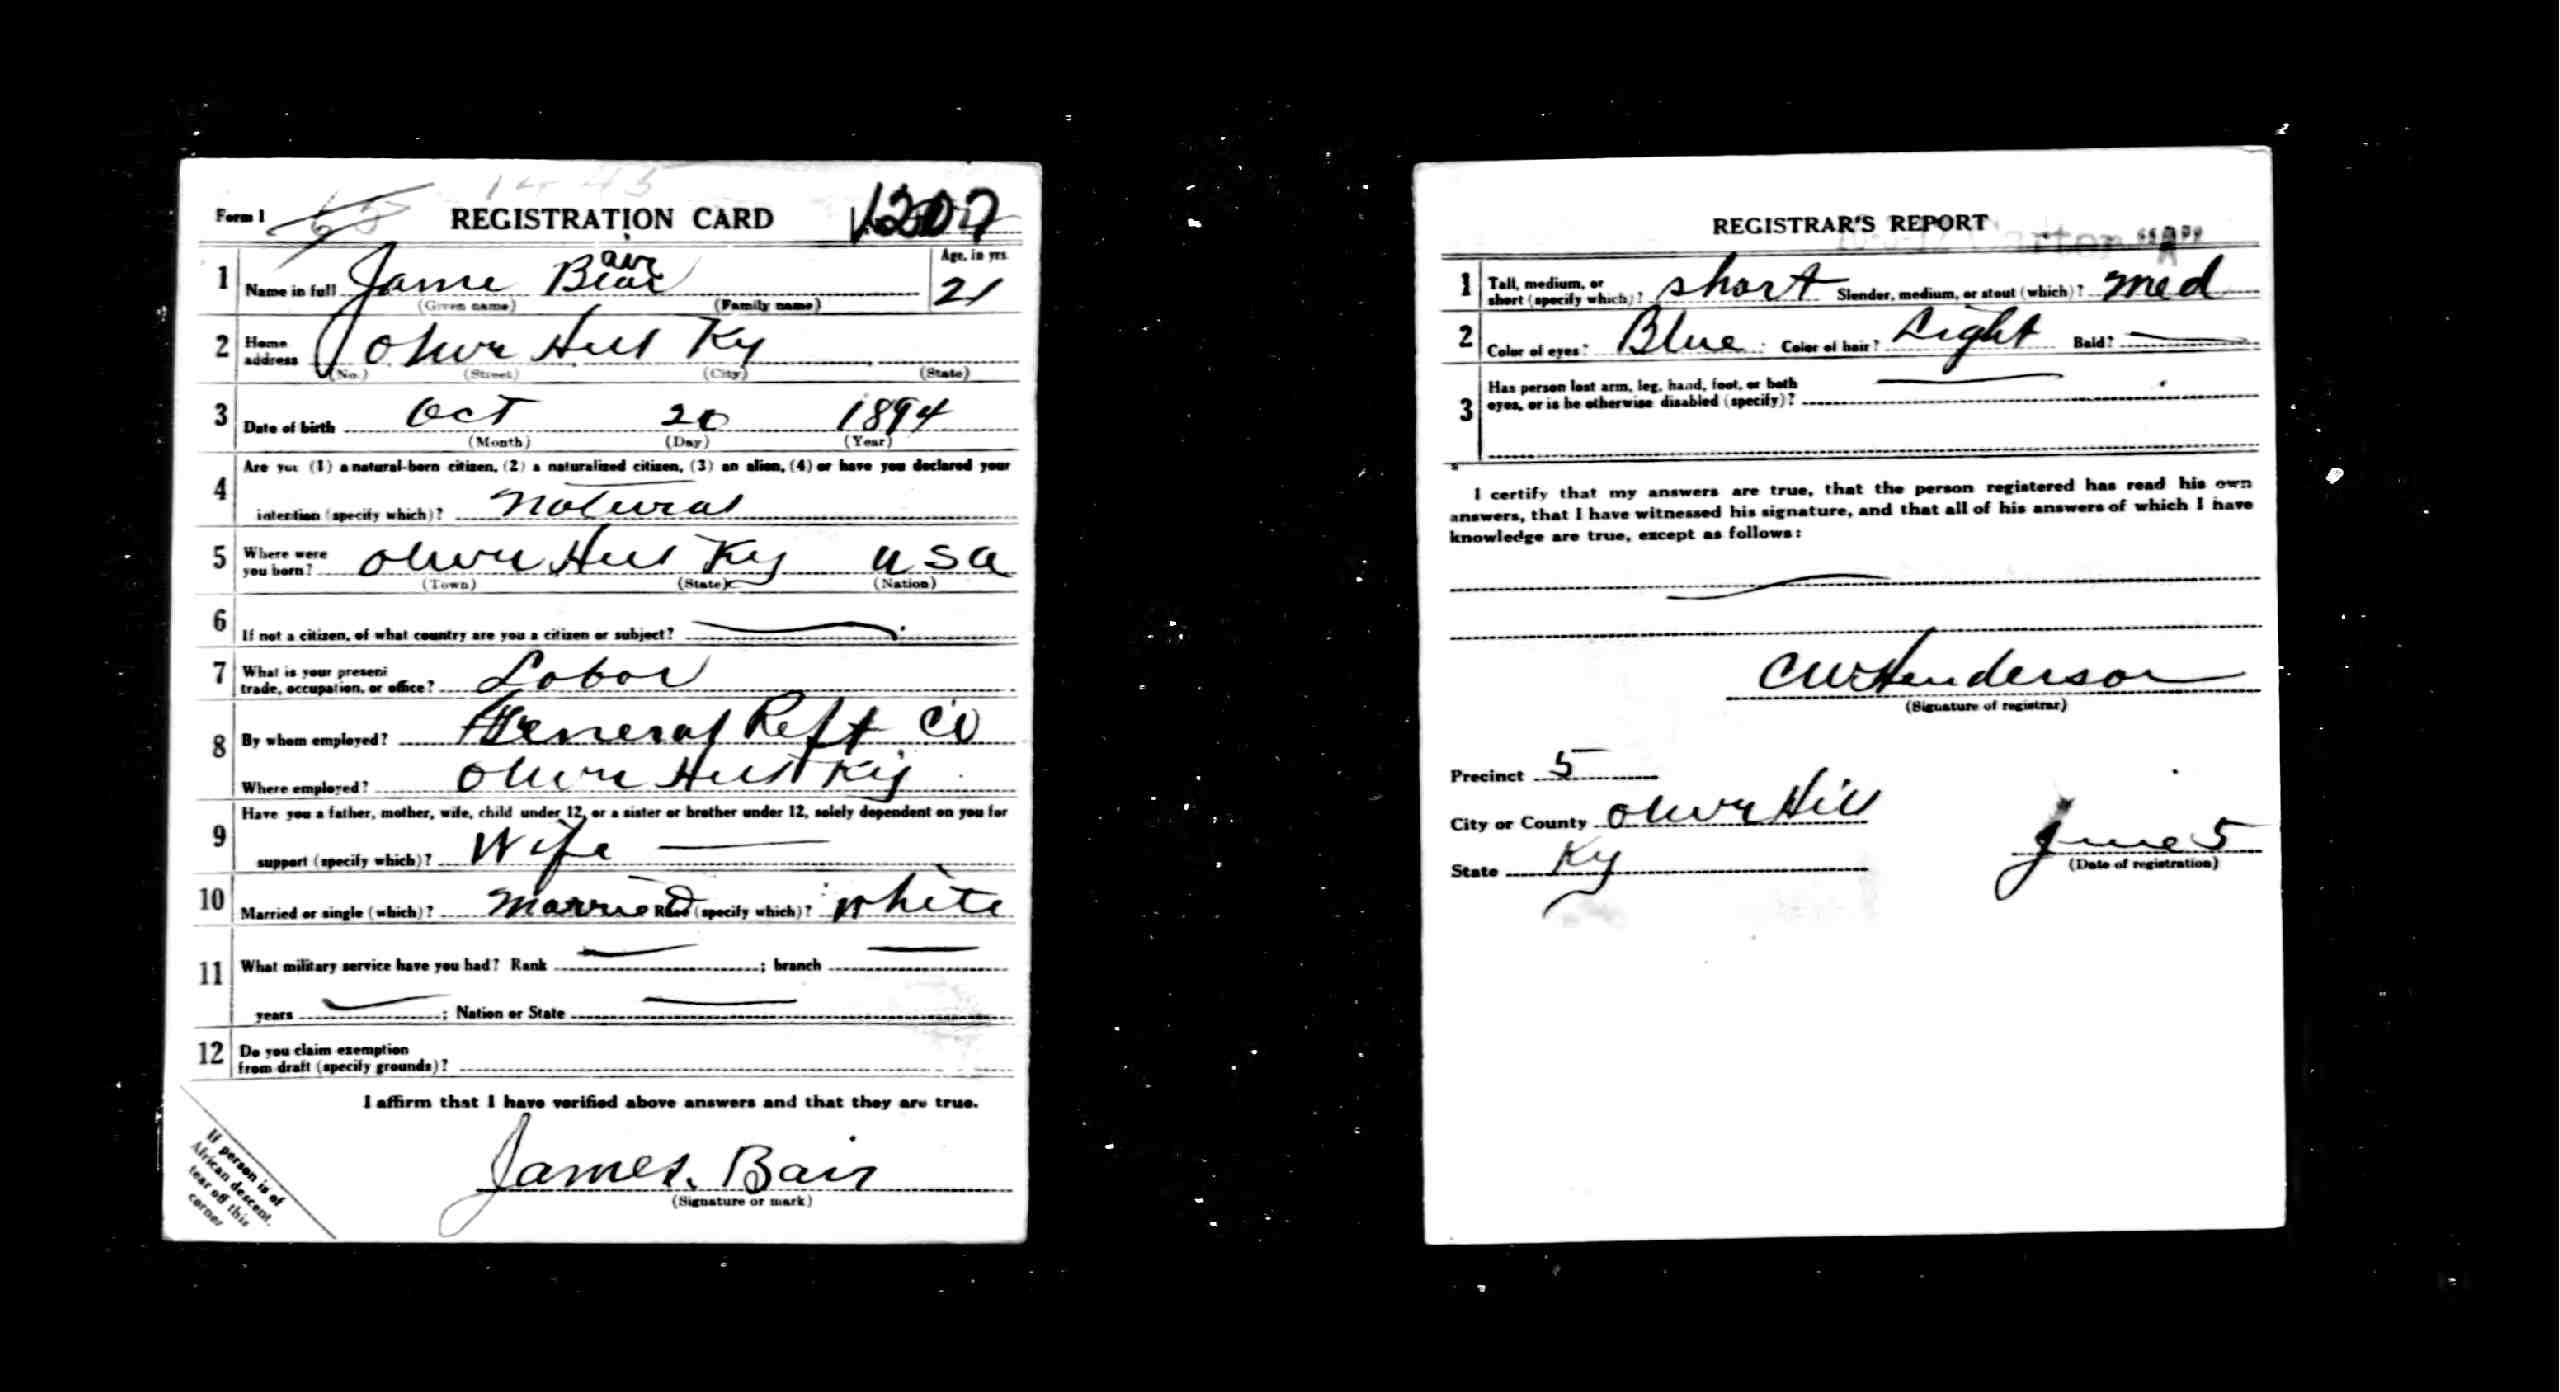 Form 1 REGISTRATION CARD
1 Name in full Jame Bear
air
(Given name) (Family name)
Age, in yrs.
21
2 Home address Oliver Hill Ky
(No.) (Street) (City) (State)
3 Date of birth Oct 20 1894
(Month) (Day) (Year)
4 Are you (1) a natural-born citizen, (2) a naturalized citizen, (3) an alien, (4) or have you declared your
intention (specify which)? Natural
5 Where were you born? Oliver Hill Ky USA
(Town) (State) (Nation)
6 If not a citizen, of what country are you a citizen or subject?
7 What is your present
trade, occupation, or office? Labor
8 By whom employed? General Reft Co
Where employed? Olive Hill Ky
9 Have you a father, mother, wife, child under 12, or a sister or brother under 12, solely dependent on you for
support (specify which)? Wife
10 Married or single (which)? Married Race (specify which)? White
11 What military service have you had? Rank ; branch
years ; Nation or State
12 Do you claim exemption
from draft (specify grounds)?
I affirm that I have verified above answers and that they are true.
James. Bair
(Signature or mark)
If person is of
African descent,
tear off this
corner
REGISTRAR'S REPORT
"A"
1 Tall, medium, or
short (specify which)? short Slender, medium, or stout (which)? med
2 Color of eyes? Blue Color of hair? Light Bald?
3 Has person lost arm, leg, hand, foot, or both
eyes, or is he otherwise disabled (specify)?
I certify that my answers are true, that the person registered has read his own
answers, that I have witnessed his signature, and that all of his answers of which I have
knowledge are true, except as follows:
CW Henderson
(Signature of registrar)
Precinct 5
City or County Oliver Hill
State Ky
June 5
(Date of registration)